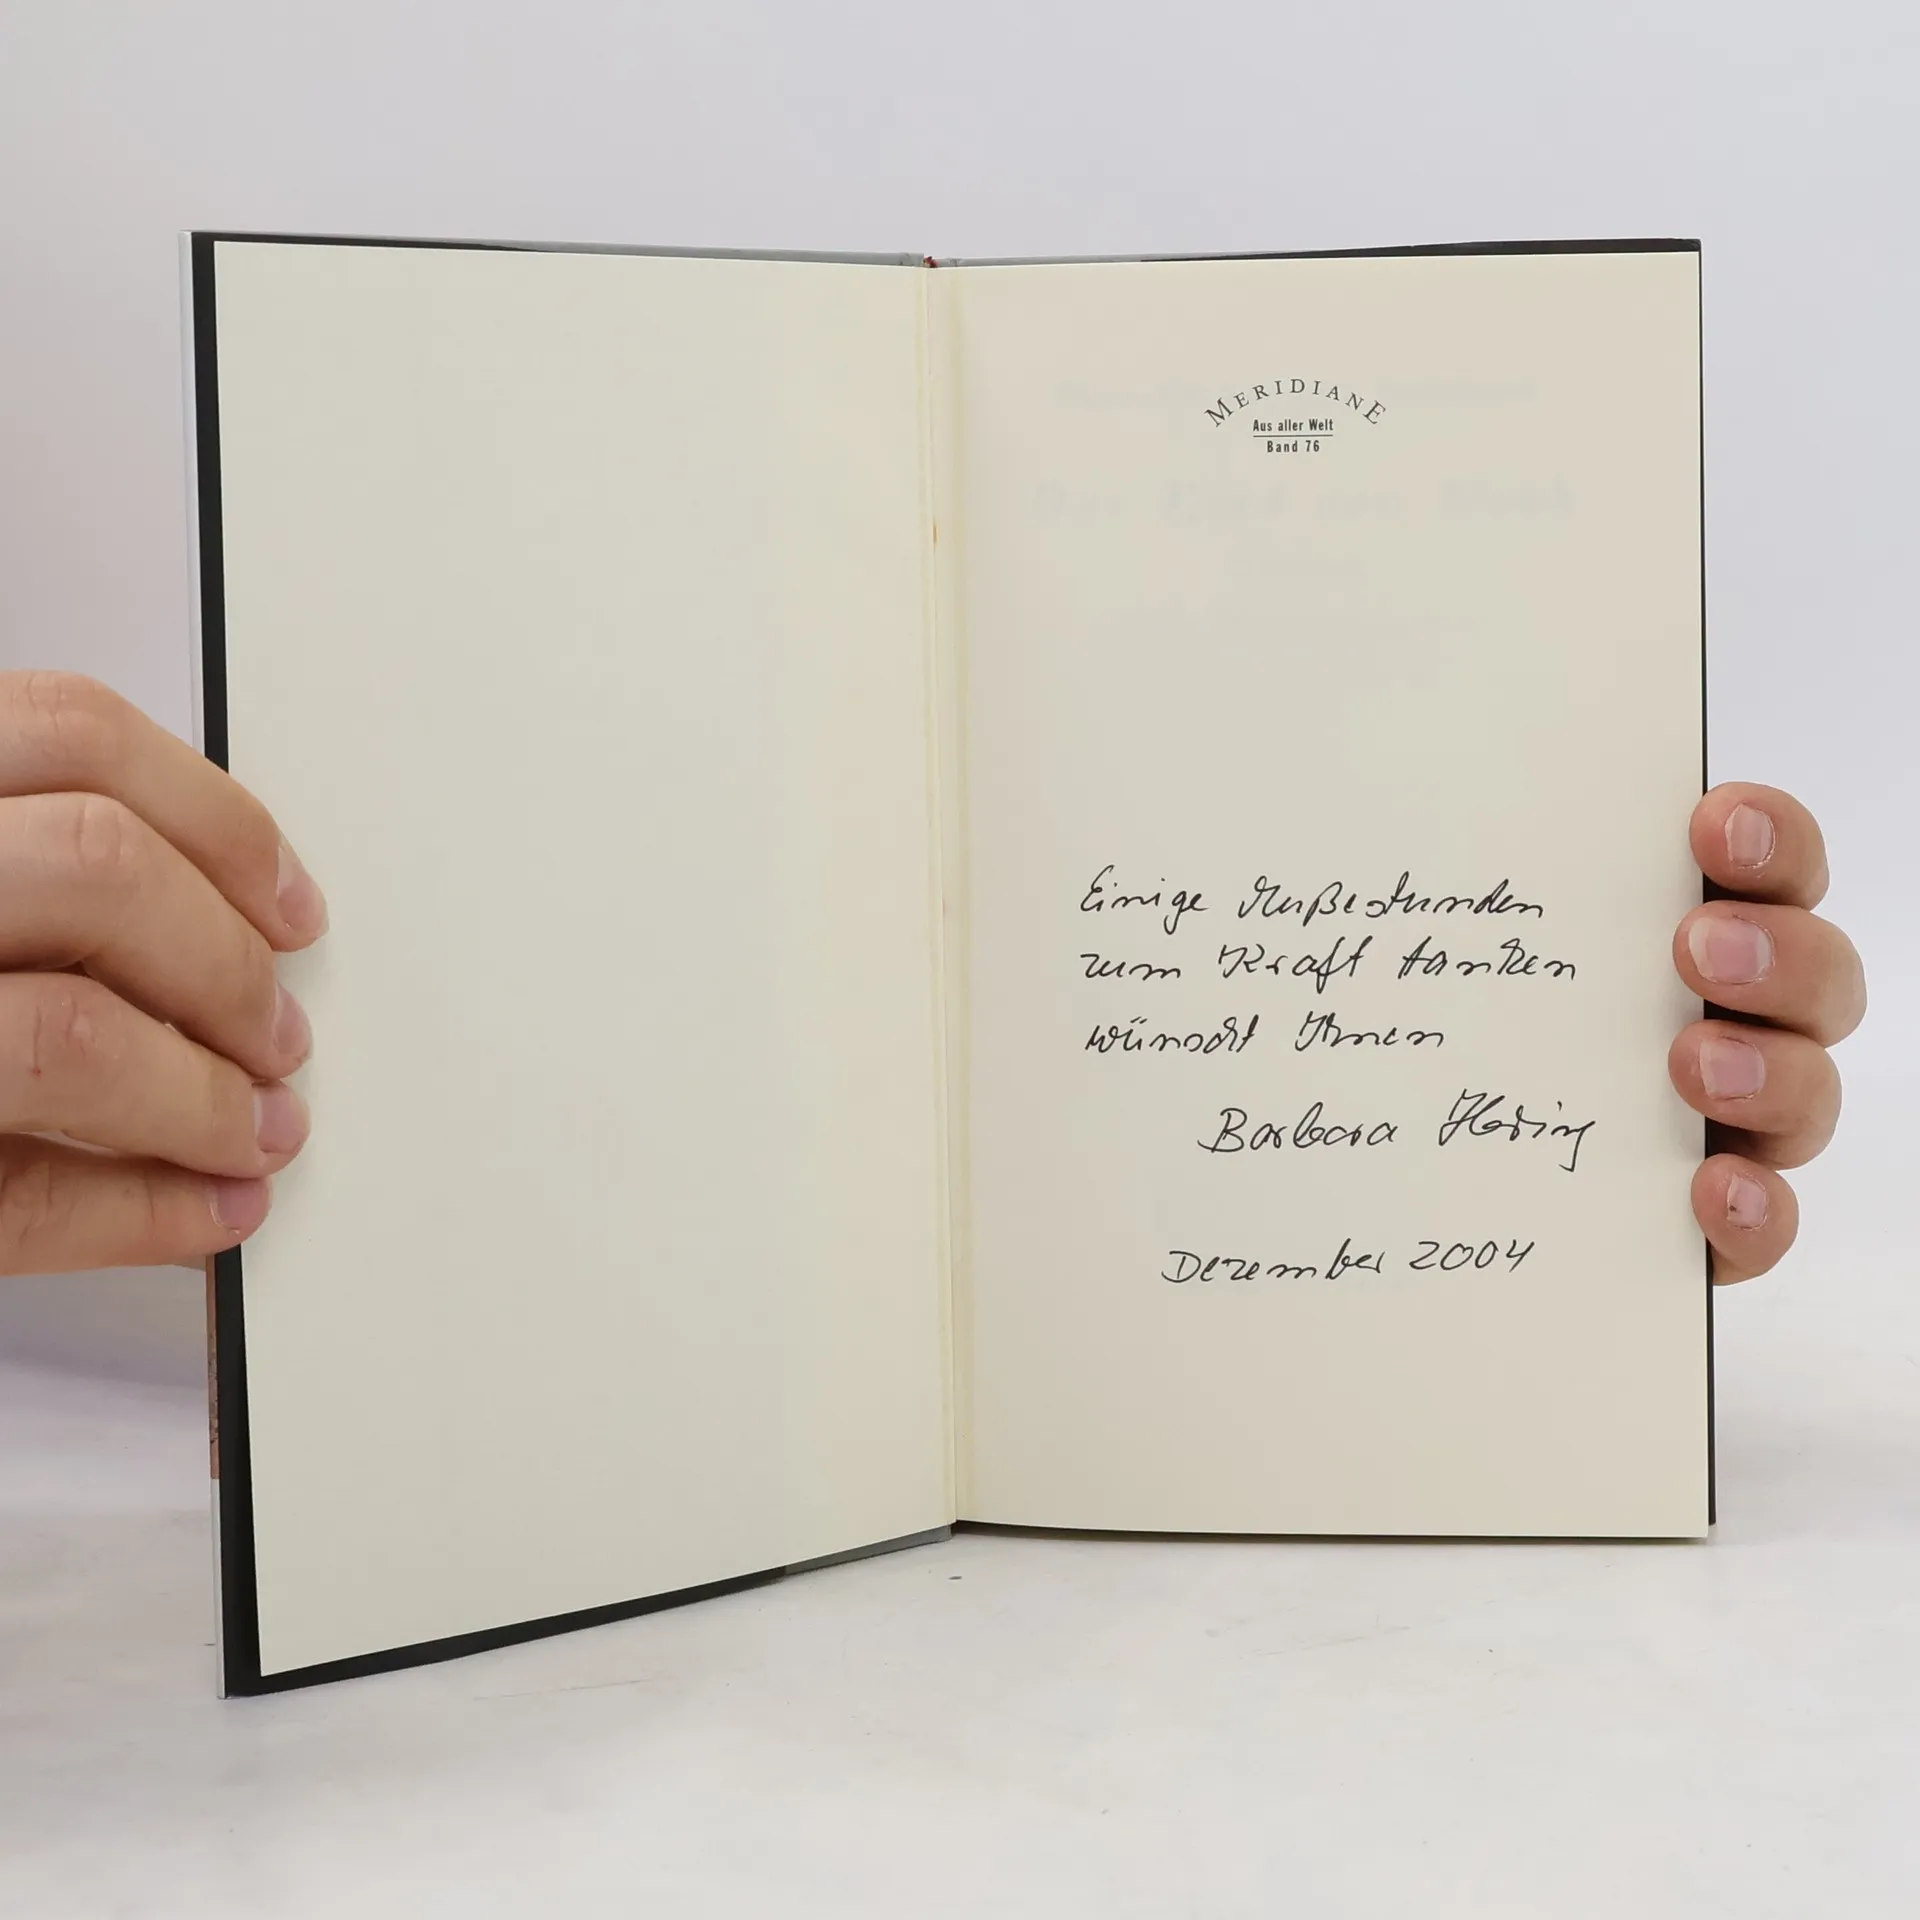 MERIDIANE
Aus aller Welt
Band 76
Einige Mußestunden
zum Kraft tanken
wünscht Ihnen
Barbara
Dezember 2004